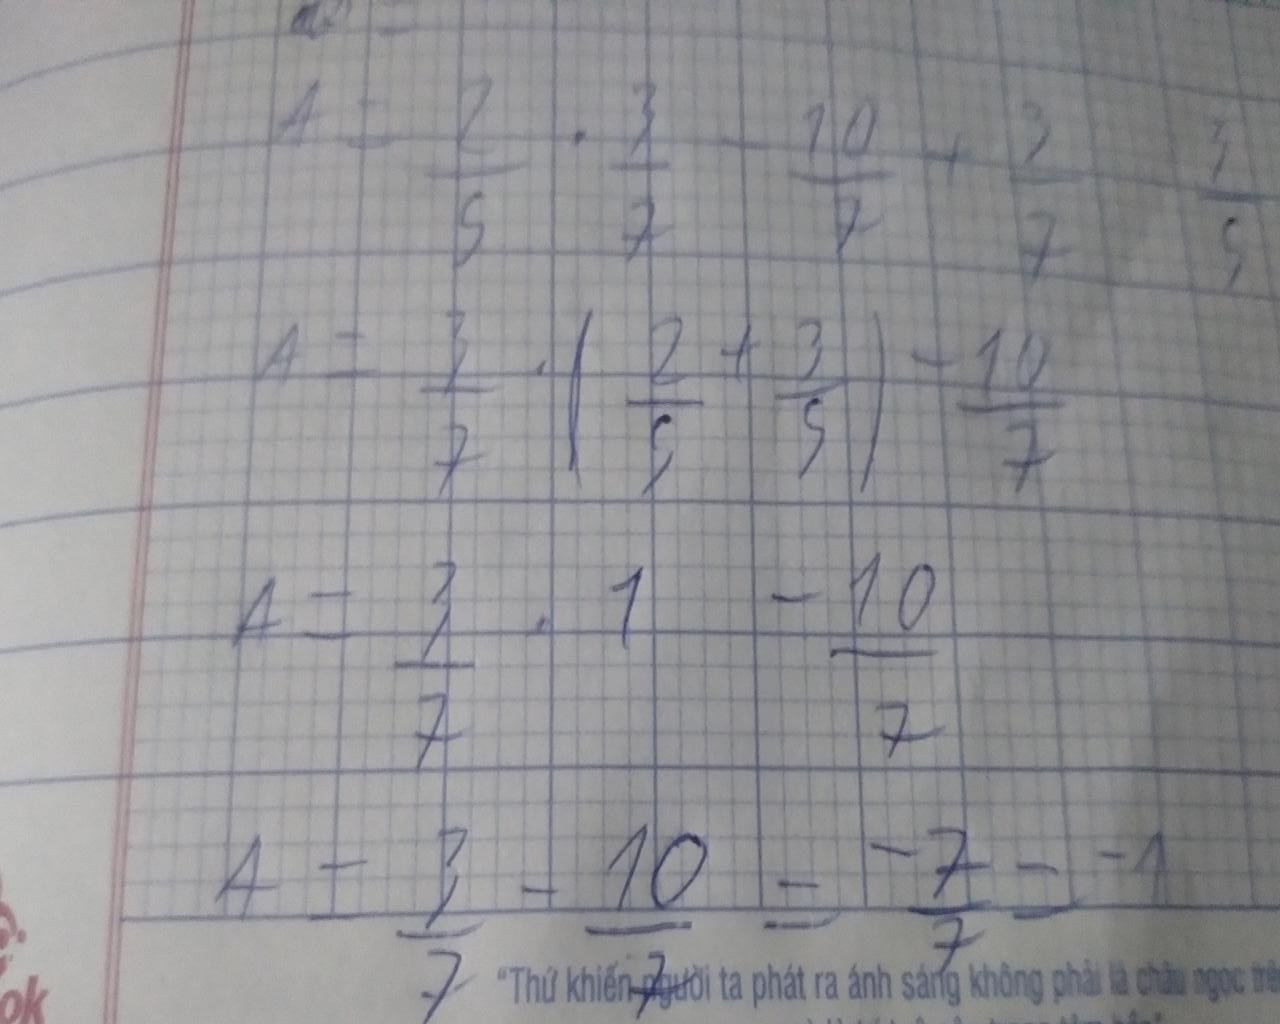 A = 2/5 . 3/7 - 10/7 + 3/7 3/5
A = 3/7 . ( 2/5 + 3/5 ) - 10/7
A = 3/7 . 1 - 10/7
A = 3/7 - 10/7 = -7/7 = -1
"Thứ khiến người ta phát ra ánh sáng không phải là châu ngọc
ok